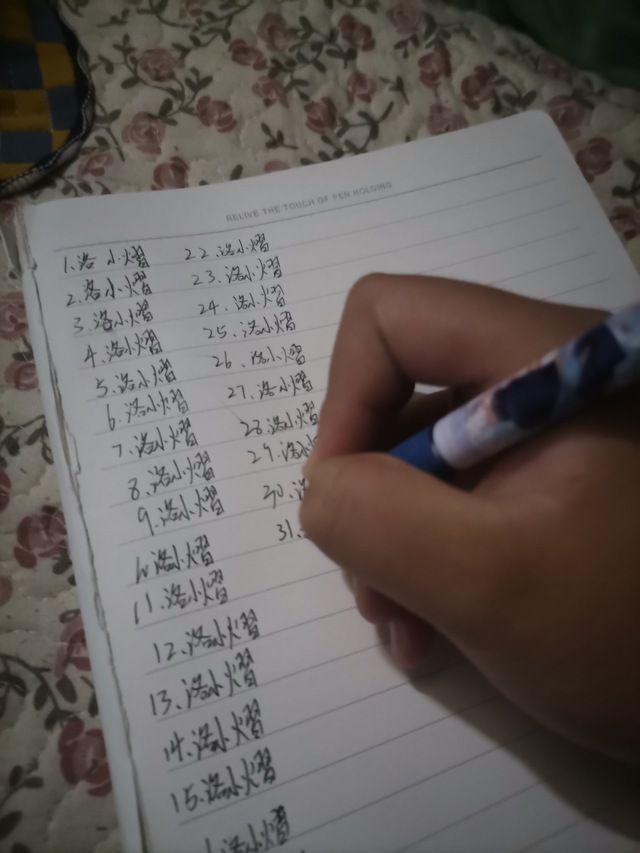 RELIVE THE TOUCH OF PEN HOLDING
1.洛小熠
2.洛小熠
3.洛小熠
4.洛小熠
5.洛小熠
6.洛小熠
7.洛小熠
8.洛小熠
9.洛小熠
10.洛小熠
11.洛小熠
12.洛小熠
13.洛小熠
14.洛小熠
15.洛小熠
洛小熠
22.洛小熠
23.洛小熠
24.洛小熠
25.洛小熠
26.洛小熠
27.洛小熠
28.洛小熠
29.洛小
30.洛
31.